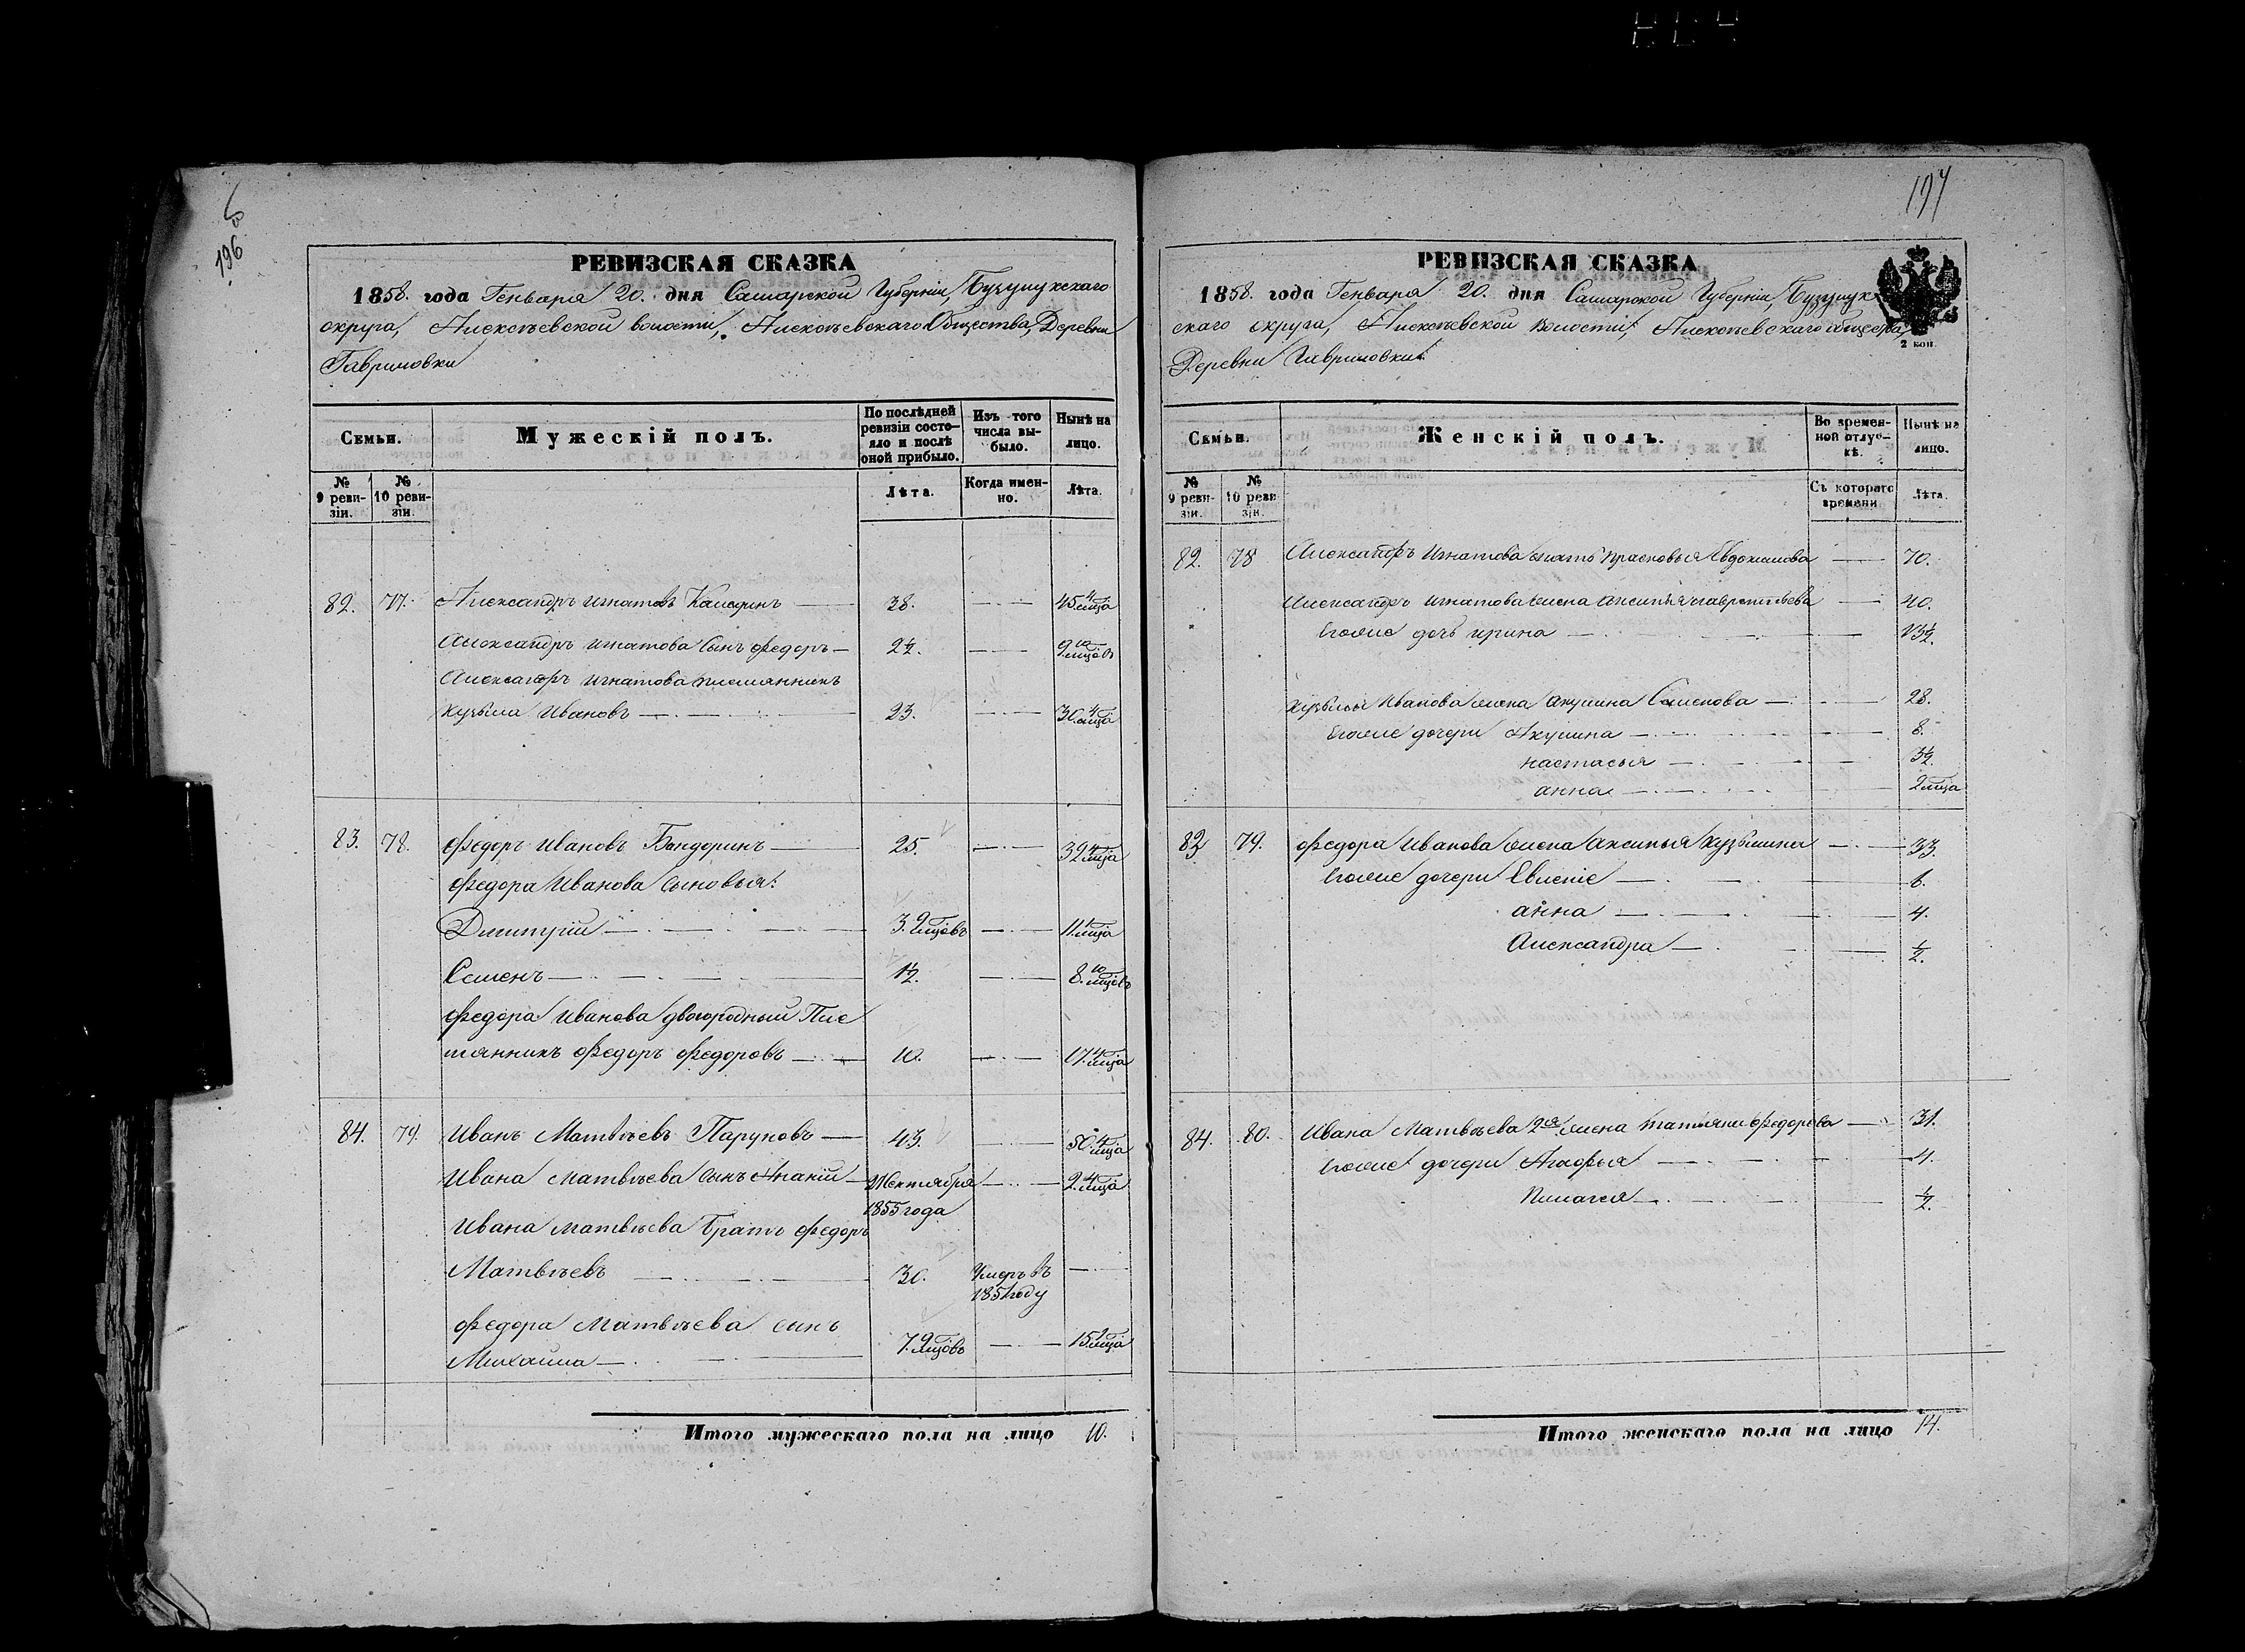 196
РЕВИЗСКАЯ СКАЗКА
1858. года Генваря 20. дня Самарской Губерніи, Бузулукскаго
округа, Алексѣевской волости, Алексѣевскаго Общества, Деревни
Гавриловки
Семьи.
Мужескій полъ.
По послѣдней ревизіи состояло и послѣ оной прибыло.
Изъ того числа выбыло.
Нынѣ на лицо.
№ 9 ревизіи.
№ 10 ревизіи.
Лѣта.
Когда именно.
Лѣта.
82. 77. Александръ Игнатовъ 38. 45. 4 мѣца
Александръ Игнатова сынъ Федоръ 2½. 9. 10 мѣцовъ
Александръ Игнатова племянникъ
Кузьма Ивановъ 23. 30. 4 мѣца
83. 78. Федоръ Ивановъ Бондоринъ 25. 32. 4 мѣца
Федора Иванова сыновья:
Дмитрій 3. 9 мѣцовъ 11. 1 мѣца
Семенъ 1½. 8. 10 мѣцовъ
Федора Иванова двоюродный Пле
мянникъ Федоръ Федоровъ 10. 17. 4 мѣца
84. 79. Иванъ Матвѣевъ Паруновъ 43. 50. 4 мѣца
Ивана Матвѣева сынъ Ананій Сентября 2. 4 мѣца
1855 года
Ивана Матвѣева Братъ Федоръ
Матвѣевъ 30. Умеръ въ
1851 году
Федора Матвѣева сынъ
Михаила 7. 9 мѣцовъ 15. 1 мѣца
Итого мужескаго пола на лицо 10.
197
РЕВИЗСКАЯ СКАЗКА
1858. года Генваря 20. дня Самарской Губерніи, Бузулук
скаго округа, Алексѣевской волости, Алексѣевскаго общества,
Деревни Гавриловки
2 коп.
Семьи.
Женскій полъ.
Во временной отлучкѣ.
Нынѣ на лицо.
№ 9 ревизіи.
№ 10 ревизіи.
Съ котораго времени
Лѣта.
82. 78 Александръ Игнатова мать Прасковья Евдокимова 70.
Александръ Игнатова жена Аксинья Лаврентьева 40.
Ихъ дочь Ирина 13½
Кузьмы Иванова жена Акулина Семенова 28.
дочери Акулина 8.
Настасья 3½.
Анна 2 мѣца
83 79. Федора Иванова жена Аксинья Кузьмина 33.
дочери Евгеніе
Анна 4.
Александра ½.
84. 80. Ивана Матвѣева 2я жена Татьяна Федорова 31.
дочери Агафья 4.
Пелагея ½.
Итого женскаго пола на лицо 14.